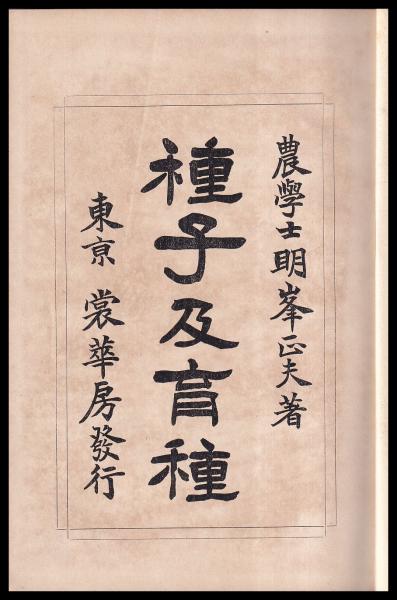 農學士 明峯正夫著
種子及育種
東京 裳華房發行